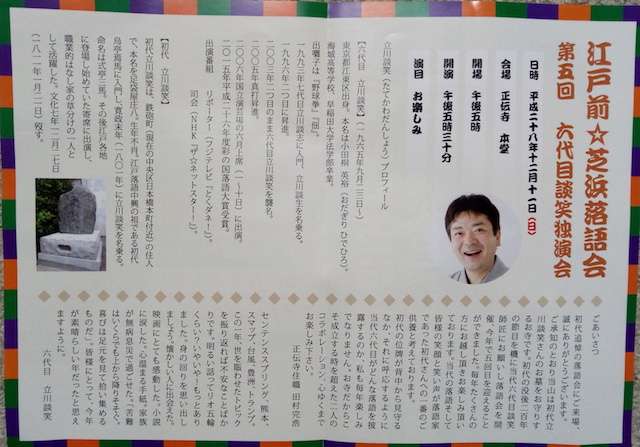 江戸前☆芝浜落語会
第五回　六代目談笑独演会
日時　平成二十八年十二月十一日(日)
会場　正伝寺　本堂
開場　午後五時
開演　午後五時三十分
演目　お楽しみ
立川談笑(たてかわだんしょう)プロフィール
【六代目　立川談笑】(一九六五年九月二三日〜)
東京都江東区出身、本名は小田桐　英裕(おだぎり ひでひろ)。
海城高等学校、早稲田大学法学部卒業。
出囃子は「野球拳」「佃」。
一九九三年七代目立川談志に入門、立川談生を名乗る。
一九九六年二つ目に昇進。
二〇〇三年二つ目のまま六代目立川談笑を襲名。
二〇〇五年真打昇進。
二〇〇六年国立演芸場の六月上席(一〜十日)に出演。
二〇一五年平成二十六年度彩の国落語大賞受賞。
出演番組　リポーター(フジテレビ「とくダネ！」)。
司会(NHK「ザ☆ネットスター！」)。
【初代　立川談笑】
初代立川談笑は、鉄砲町(現在の中央区日本橋本町付近)の住人
で、本名を足袋屋庄八。生年不月、江戸落語中興の祖である初代
烏亭焉馬に入門し、寛政末年(一八〇一年)に立川談笑を名乗る。
命名は式亭三馬。その後江戸各地
に登場し始めていた寄席に出演し、
職業的はなし家の草分けの一人と
して活躍した。文化七年十二月二七日
(一八一一年一月二二日)歿す。
ごあいさつ
初代追善の落語会にご来場、
誠にありがとうございます。
ご承知のとおり当山は初代立
川談笑さんのお墓をお守りす
るお寺です。初代の没後二百年
の節目を機に当代六代目談笑
師匠にお願いし落語会を開
催、今年で五回目を迎えること
ができました。毎年たくさんの
方にお越し頂きお楽しみ頂い
ております。当代の落語そして
皆様の笑顔と笑い声が落語家
であった初代さんへの一番のご
供養と考えております。
初代の位牌が背中から見守る
なか、それに呼応するように
当代六代目がどんな落語を披
露するのか、私も毎年楽しみ
でなりません。お寺だからこ
そ成立する時を超えた二人の
コラボレーション、心ゆくまで
お楽しみ下さい。
正伝寺住職　田村完浩
センテンススプリング、熊本
スマップ、台風、豊洲、トランプ。
この一年、世を賑わせたトピック
を振り返ればこの変なことば
かりです。明るい話でリオ五輪
くらい？いやいや！もっとあり
ました。身の回りを思い出し
ましょう。懐かしい人に出会えた。
映画にとても感動した。小説
に涙した。心温まる手紙。家族
が無病息災で過ごせた。「苦難
はいくらでも上から降りそそぐ。
喜びは足元を見て拾い集める
ものだ」。皆様にとって、今年
が素晴らしい年だったと思え
ますように。
六代目　立川談笑